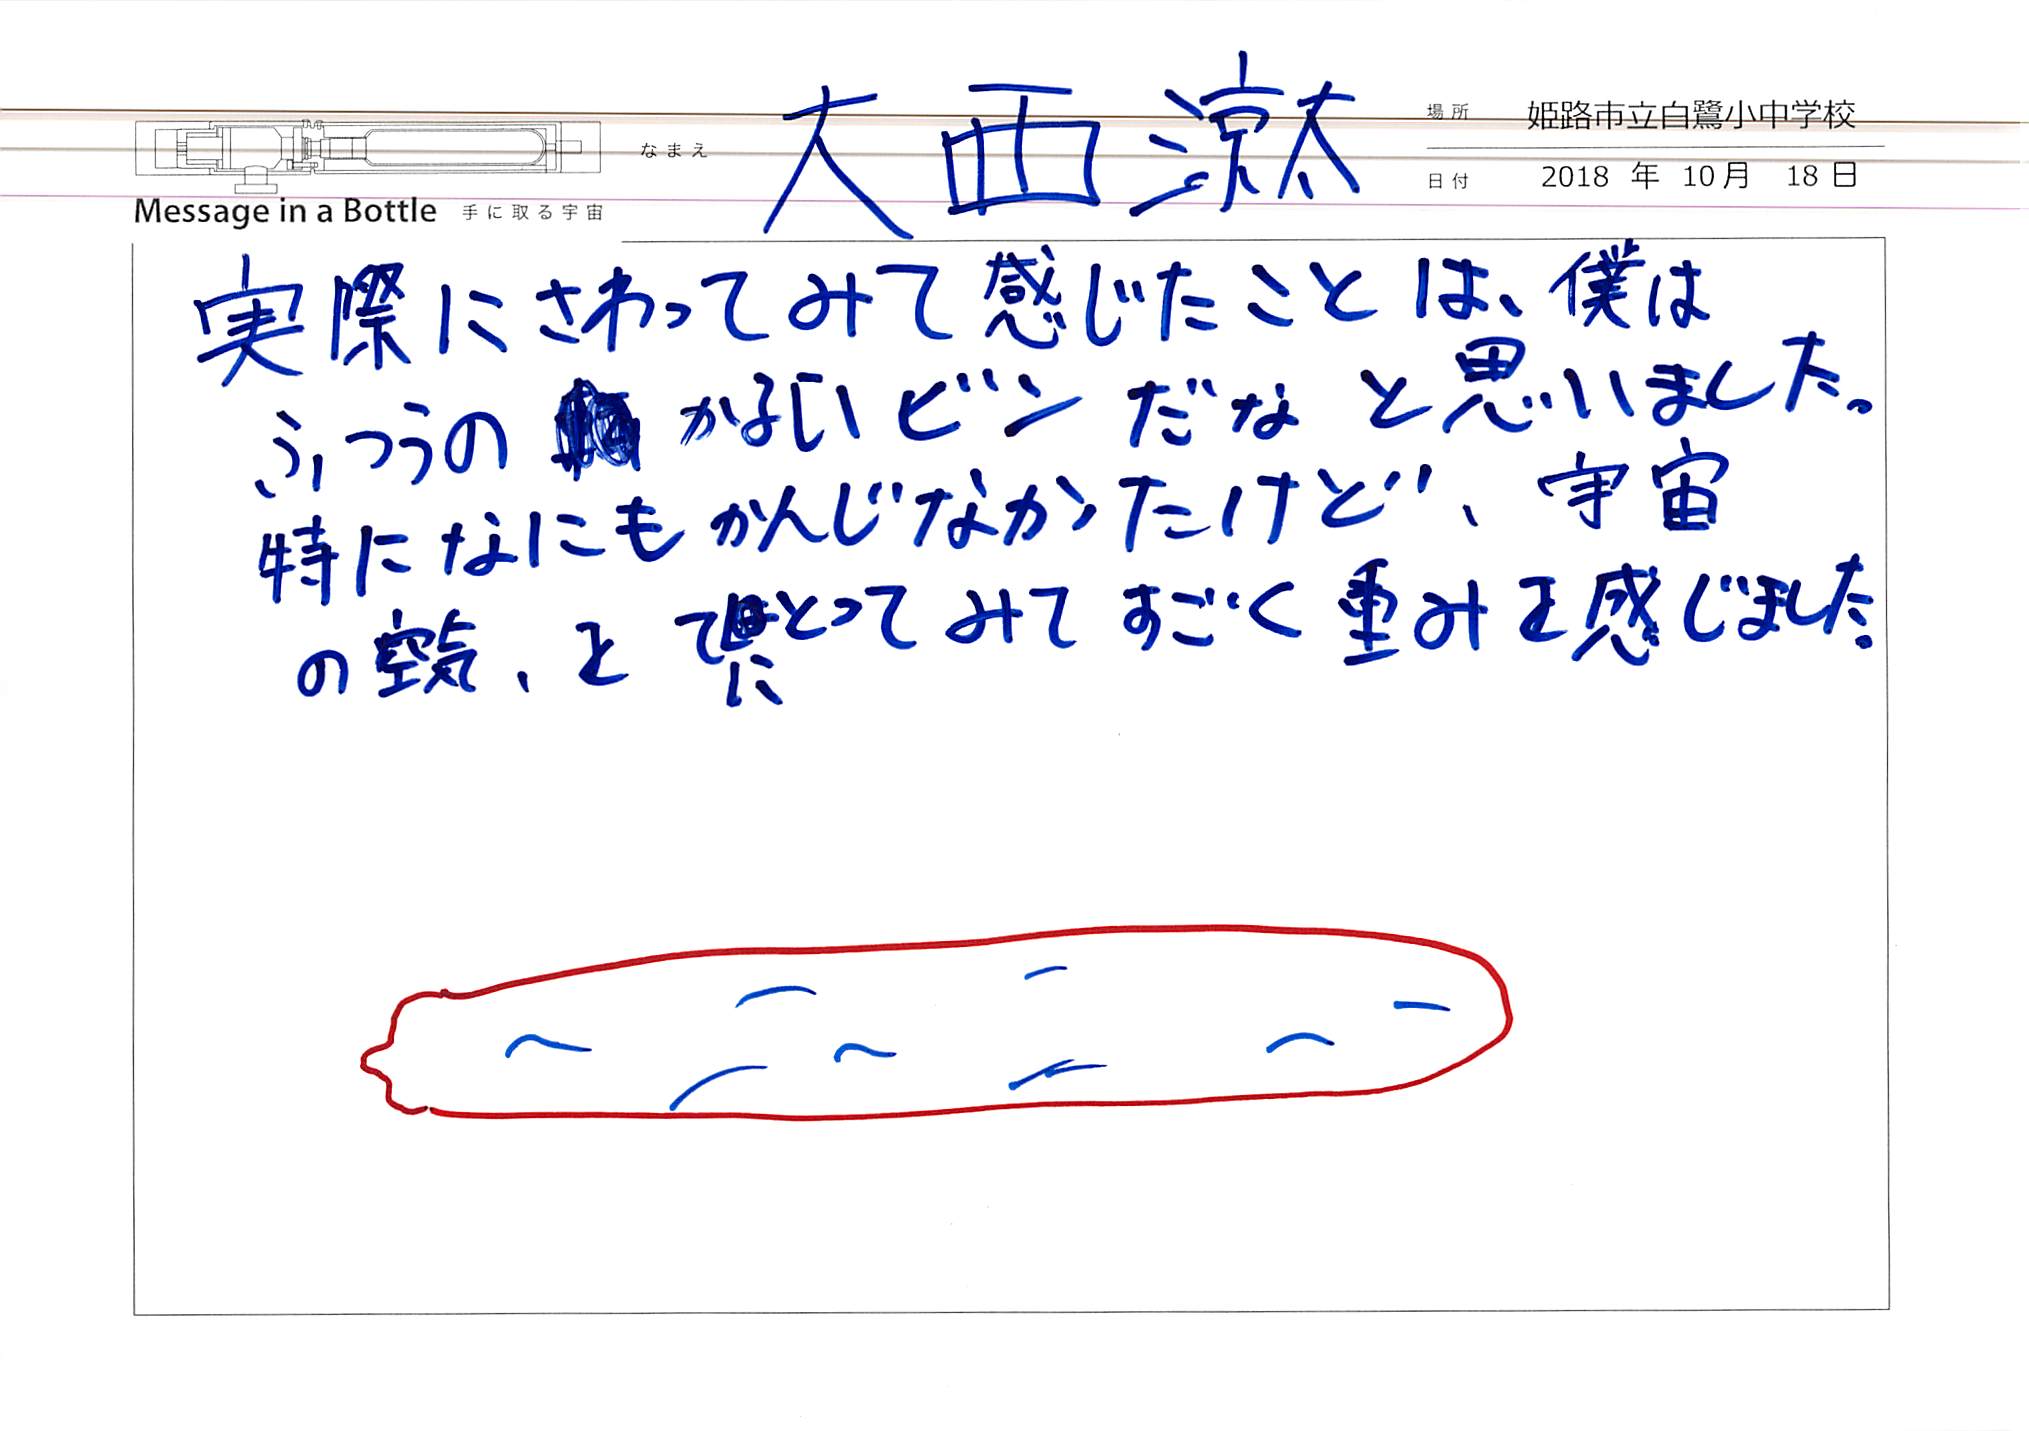 なまえ 大西涼太
場所 姫路市立白鷺小中学校
日付 2018 年 10 月 18 日
Message in a Bottle 手に取る宇宙
実際にさわってみて感じたことは、僕は
ふつうの かるいビンだなと思いました。
特になにもかんじなかったけど、宇宙
の空気、を てにとってみてすごく重みを感じました。